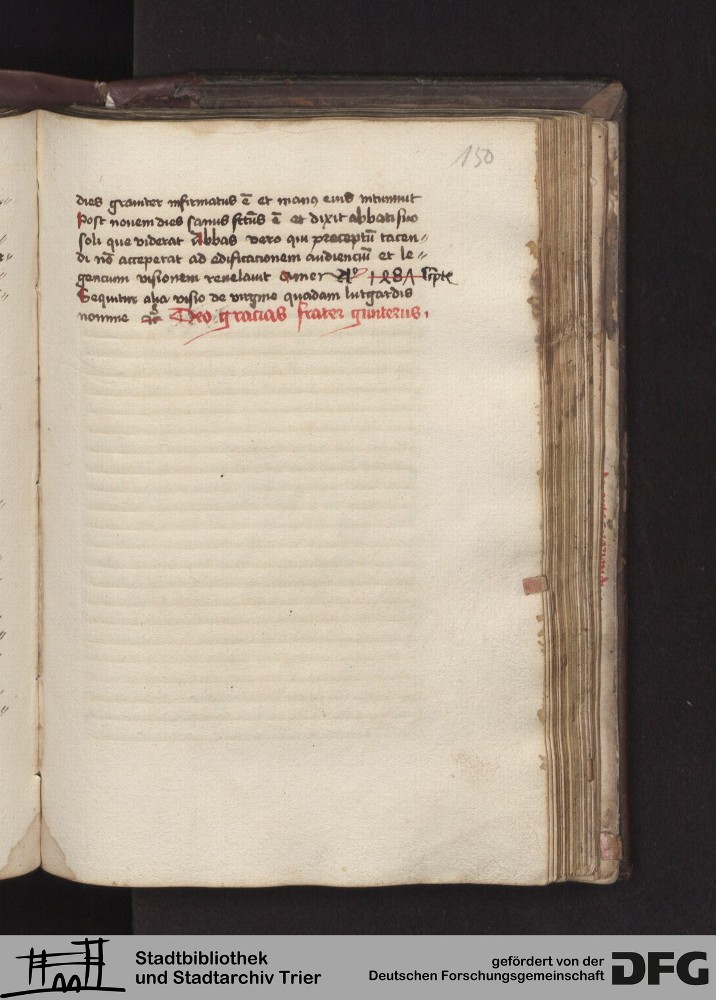 150
dies grauiter infirmatus ē et manꝯ eius intumuit
Post nouem dies sanus fctūs ē et dixit abbati suo
soli que viderat Abbas vero qui preceptū tacen〃
di nō acceperat ad edificationem audienciū et le〃
gencium visionem reuelauit Amen Aº 1481 scripte
Sequitur alia visio de virgine quadam lutgardis
nomine Deo gracias frater gunterus.
Stadtbibliothek
und Stadtarchiv Trier
gefördert von der
Deutschen Forschungsgemeinschaft
DFG